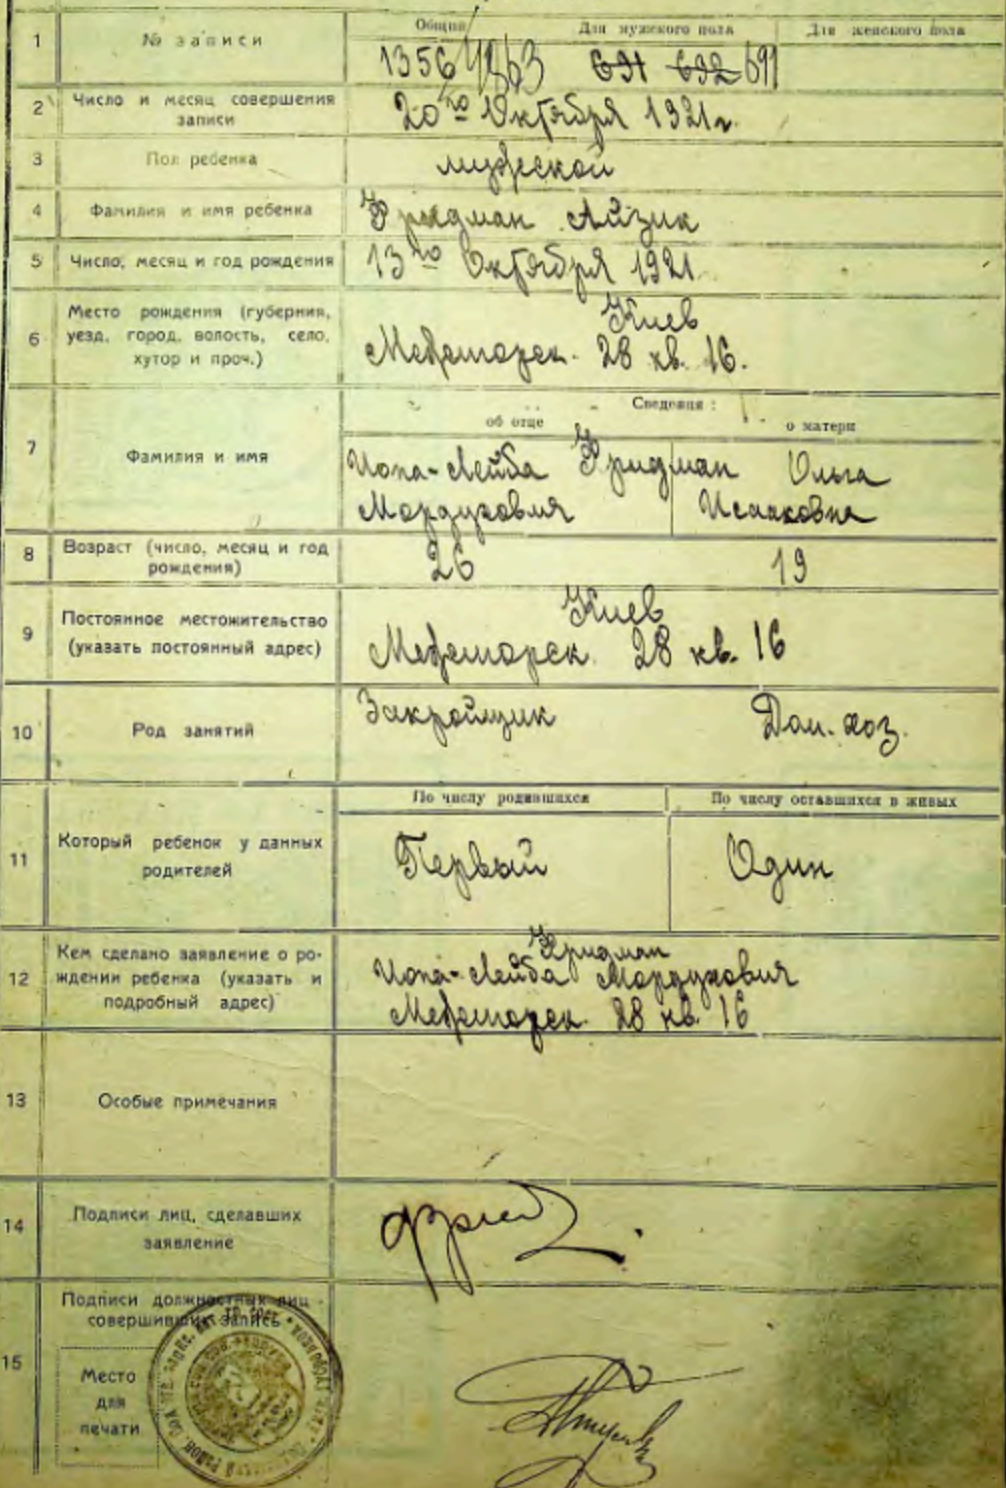 1 № записи Общий Для мужского пола Для женского пола
1356 1363 631 632 691
2 Число и месяц совершения записи
20го Октября 1921г.
3 Пол ребенка мужеской
4 Фамилия и имя ребенка Фридман Айзик
5 Число, месяц и год рождения 13го Октября 1921
6 Место рождения (губерния, уезд, город, волость, село, хутор и проч.)
Киев
28 кв. 16.
Сведения:
об отце о матери
7 Фамилия и имя
Иопа-Лейба Фридман Ольга
Мордухович Исааковна
8 Возраст (число, месяц и год рождения) 26 19
9 Постоянное местожительство (указать постоянный адрес)
Киев
28 кв. 16
10 Род занятий Закройщик Дом. хоз.
По числу родившихся По числу оставшихся в живых
11 Который ребенок у данных родителей Первый Один
12 Кем сделано заявление о рождении ребенка (указать и подробный адрес)
Фридман
Иопа-Лейба Мордухович
28 кв. 16
13 Особые примечания
14 Подписи лиц, сделавших заявление
15 Подписи должностных лиц совершивших запись
Место
для
печати